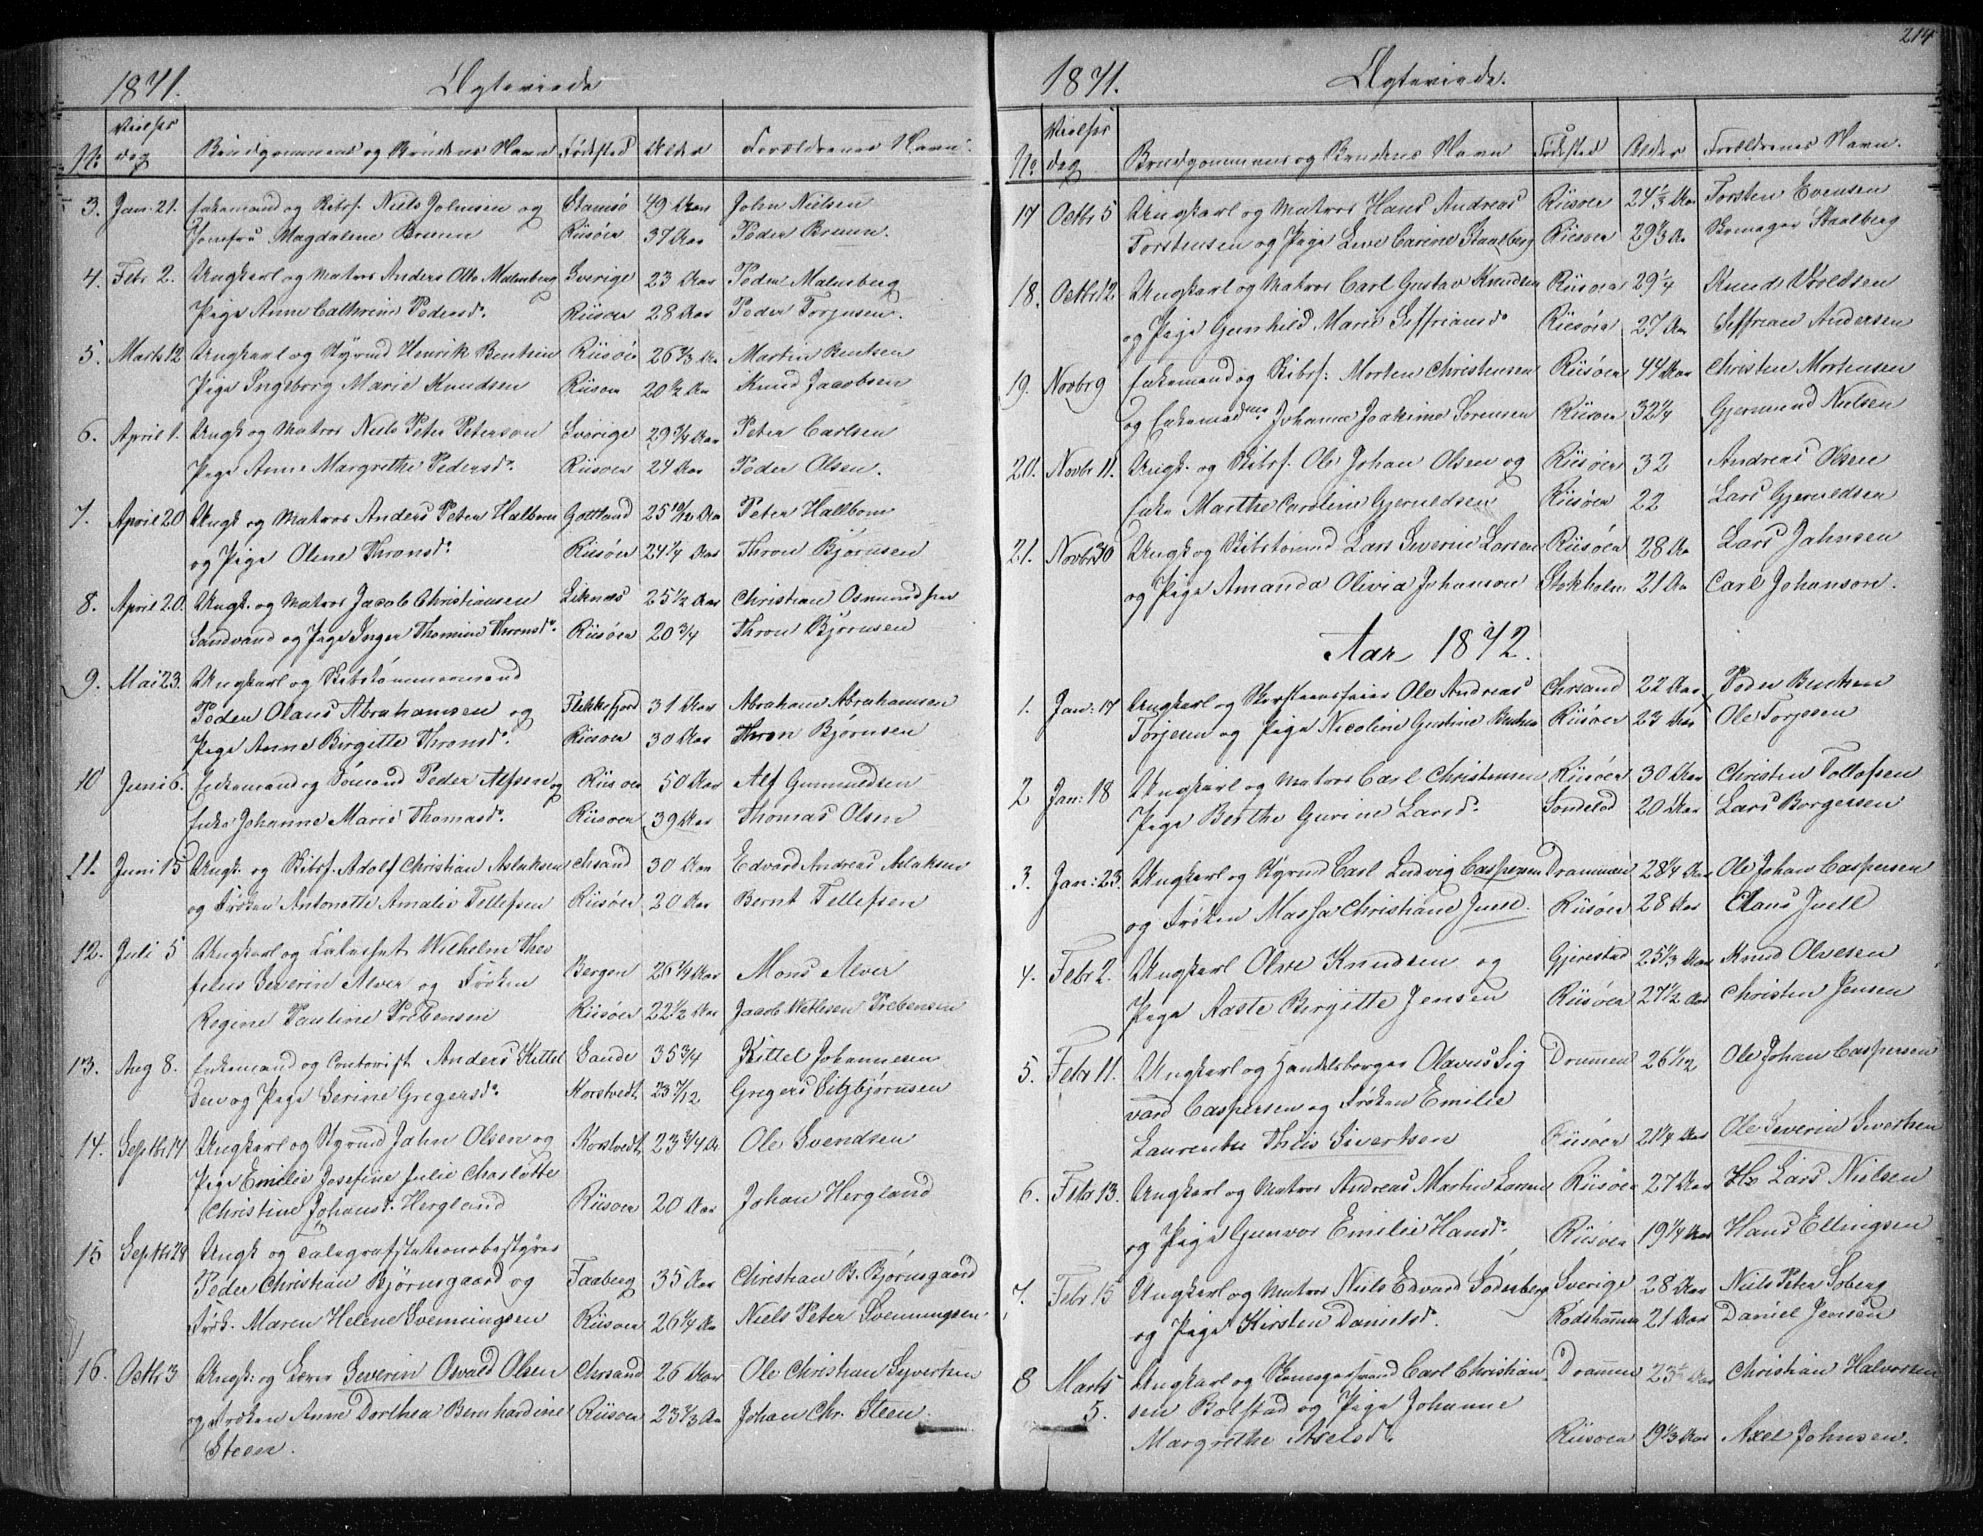 214
1871. Ægteviede
No Vielses dag Brudgommens og Brudens Navn Fødested Alder Forældrenes Navn.
3. Jan. 21. Enkemand og Skibsf. Niels Johnsen og Stamsø 49 Aar John Nielsen
Jomfru Magdalene Bruun Riisøer 37 Aar Peder Bruun.
4. Febr 2. Ungkarl og Matros Anders Otto Malmberg Sverige 23 Aar Peder Malmberg
Pige Anne Cathrine Pedersd. Riisøer 28 Aar Peder Torjusen.
5. Marts 12 Ungkarl og Styrmd Henrik Bentsen Riisøer 26 Aar Martin Bentsen
Pige Ingeborg Marie Knudsen Riisøer 20 1/2 Aar Knud Jacobsen
6. April 1. Ungk og Matros Niels Peter Peterson Sverige 29 3/4 Aar Peter Carlsen
Pige Anne Margrethe Pedersd. Riisøer 24 Aar Peder Olsen.
7. April 20 Ungk og Matros Anders Peter Halbom Gottland 25 10/12 Aar Peter Hallbom
og Pige Oline Thronsd. Riisøer 24 1/4 Aar Thron Bjørnsen
8. April 20. Ungk. og Matros Jacob Christiansen 25 1/2 Aar Christian Osmundsen
Sandvand og Pige Inger Thomine Thronsd. Riisøer 20 3/4 Thron Bjørnsen
9. Mai 23. Ungkarl og Skibstømmermand
Peder Olaus Abrahamsen og Flekkefjord 31 Aar Abraham Abrahamsen
Pige Anne Birgitte Thronsd. Riisøer 30 Aar Thron Bjørnsen
10 Juni 6. Enkemand og Sømand Peder Alfsen og Riisøer 50 Aar Alf Gunnuldsen
Enke Johanne Marie Thomasd. Riisøer 39 Aar Thomas Olsen
11. Juni 15 Ungk. og Skibsf. Adolf Christian Aslaksen Chsand 30 Aar Edvard Andreas Aslaksen
og Frøken Antonette Amalie Tellefsen Riisøer 20 Aar Bernt Tellefsen
12. Juli 5 Ungkarl og Wilhelm Theo
filus Severin Alver og Frøken Bergen 26 1/4 Aar Mons Alver
Regine Pauline Prebensen Riisøer 22 1/2 Aar Jacob Wetlesen Prebensen
13. Aug 8. Enkemand og Contorist Anders Kittel Sande 35 3/4 Kittel Johannesen
og Pige Serine Gregersd. Korstvedt 23 7/12 Gregers
14. Septbr 14 Ungkarl og Styrmd Jahn Olsen og Korstvedt 23 3/4 Aar Ole Svendsen
Pige Emilie Josefine Julie Charlotte
Christine Johansd. Hergland Riisøer 20 Aar Johan Hergland
15 Septbr 28 Ungk og Telegrafstationsbestyrer
Peder Christian Bjørnsgaard og Faaberg 35 Aar Christian B. Bjørnsgaard
Frøk. Maren Helene Svenningsen Riisøer 26 1/4 Aar Niels Peter Svenningsen
16. Octbr 3 Ungk. og Lærer Severin Osvald Olsen Chrsand 26 Aar Ole Christian Syvertsen
og Frøken Anne Dorthea Bernhardine Riisøer 23 1/3 Aar Johan Chr. Steen.
Steen.
1871. Ægteviede.
No. Vielses dag Brudgommens og Brudens Navn Fødested Alder Forældrenes Navn.
17 Octbr 5 Ungkarl og Matros Hans Andreas Riisøer 24 1/2 Aar Torsten Evensen
Torstensen og Pige Live Carine Staalberg Riisøer 29 1/3 Aar Staalberg
18. Octbr 12 Ungkarl og Matros Carl Gustav Knudsen Riisøer 29 1/4 Knud
og Pige Gunhild Marie Seffriansd. Riisøer 27 Aar Seffrian Andersen
19. Novbr 9 Enkemand og Skibsf: Morten Christensen Riisøer 44 Aar Christen Mortensen
og Enkemad. Johanne Joakime Sørensen Riisøer 32 1/4 Gjermund Nielsen
20. Novbr 11. Ungk. og Skibsf. Ole Johan Olsen og Riisøer 32 Andreas Olsen
Enke Marthe Caroline Gjeruldsen Riisøer 22 Lars Gjeruldsen
21. Novbr 30 Ungk og Skibstømmd Lars Severin Larsen Riisøer 28 Aar Lars Jahnsen
og Pige Amanda Olivia Johanson Stokholm 21 Aar Carl Johanson.
Aar 1872.
1. Jan: 17 Ungkarl og Skorstensfeier Ole Andreas Chrsand 22 Aar Peder Bentsen
Torjesen og Pige Nicoline Gustine Bentsen Riisøer 23 Aar Ole Torjesen
2 Jan: 18 Ungkarl og Matros Carl Christensen Riisøer 30 Aar Christen Tollofsen
Pige Berthe Gurine Larsd. Søndelød 20 Aar Lars Borgersen
3. Jan: 23. Ungkarl og Styrmd Carl Ludvig Caspersen Drammen 28 1/4 Aar Ole Johan Caspersen
og Frøken Massa Christiane Juell. Riisøer 28 Aar Claus Juell
4. Febr 2. Ungkarl Olve Knudsen og Gjerestad 25 1/3 Aar Knud Olvesen
Pige Aaste Birgitte Jensen Riisøer 27 1/2 Aar Christen Jensen
5. Febr 11. Ungkarl og Handelsborger Olavus Sig Drammen 26 1/12 Ole Johan Caspersen
vard Caspersen og Frøken Emilie
Laurentze Thiis Sivertsen Riisøer 21 1/4 Aar Ole Severin Sivertsen
6. Febr 13. Ungkarl og Matros Andreas Martin Larsen Riisøer 27 Aar Lars Nielsen
og Pige Gunvor Emilie Hansd. Riisøer 19 1/4 Aar Hans Ellingsen
7. Febr 15 Ungkarl og Matros Niels Edvard Söderberg Sverige 28 Aar Niels Peter
og Pige Kirsten Danielsd. 21 Aar Daniel Jensen
8 Marts 5. Ungkarl og Carl Christian Drammen 23 Aar Christian Halvorsen
sen Bolstad og Pige Johanne
Margrethe Axelsd. Riisøer 19 1/3 Aar Axel Johnsen.